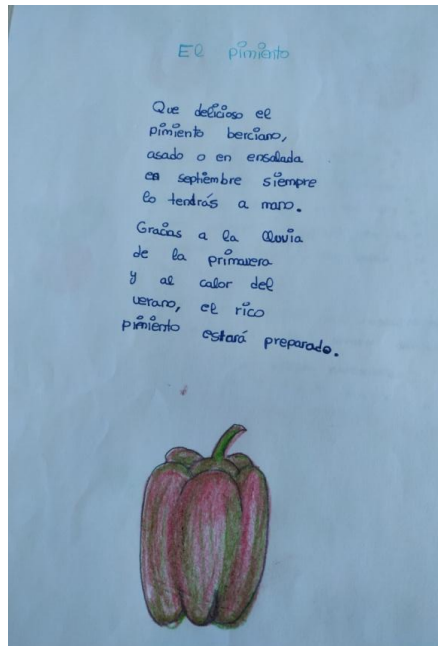 El pimiento
Que delicioso el
pimiento berciano,
asado o en ensalada
en septiembre siempre
lo tendrás a mano.
Gracias a la lluvia
de la primavera
y al calor del
verano, el rico
pimiento estará preparado.